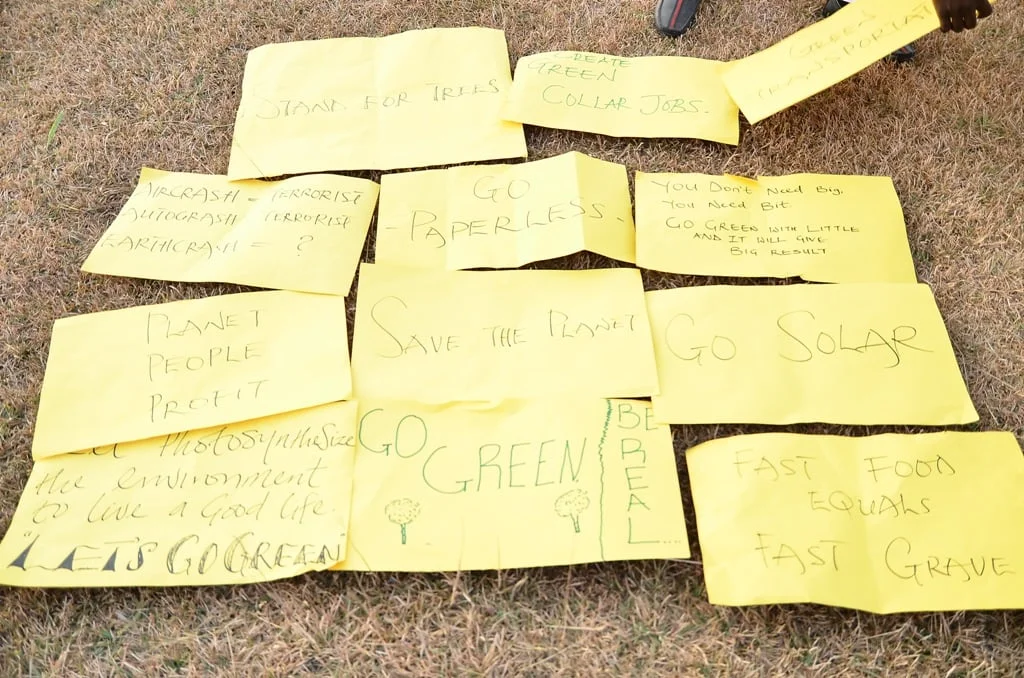 STAND FOR TREES
CREATE
GREEN
COLLAR JOBS.
GREEN
TRANSPORTAT
AIRCRASH = TERRORIST
AUTOCRASH = TERRORIST
EARTHCRASH = ?
GO
- PAPERLESS -
YOU DON'T NEED BIG,
YOU NEED BIT.
GO GREEN WITH LITTLE
AND IT WILL GIVE
BIG RESULT
PLANET
PEOPLE
PROFIT
SAVE THE PLANET
GO SOLAR
PhotosyntheSize
the environment
to live a Good life.
"LET'S GO GREEN"
GO
GREEN
BE
REAL....
FAST FOOD
EQUALS
FAST GRAVE